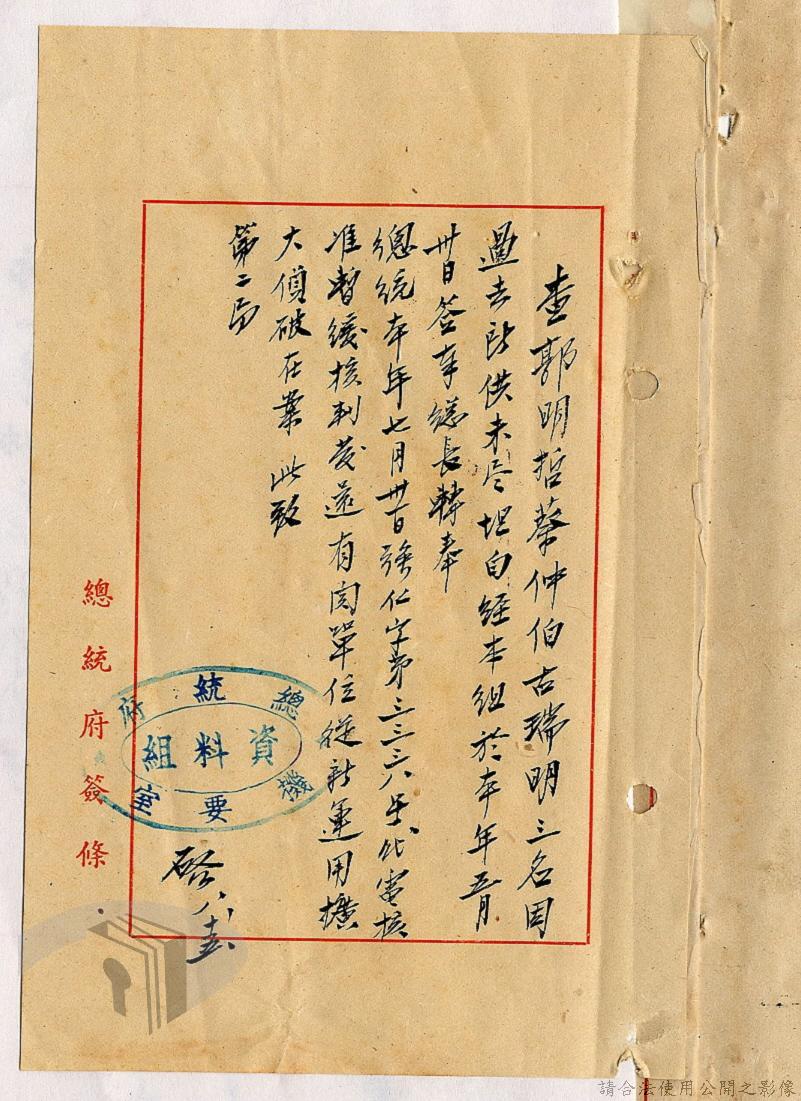 查郭明哲蔡仲伯古瑞明三名因
過去所供未尽坦白經本組於本年五月
卅日签奉總長轉奉
總統本年七月卅日強仁字第三三三六号代電核
准暫緩核判發還有関單位從新運用擴
大偵破在案 此致
第二局
總統府機要室
資料組
啓 八、十五
總統府簽條
請合法使用公開之影像